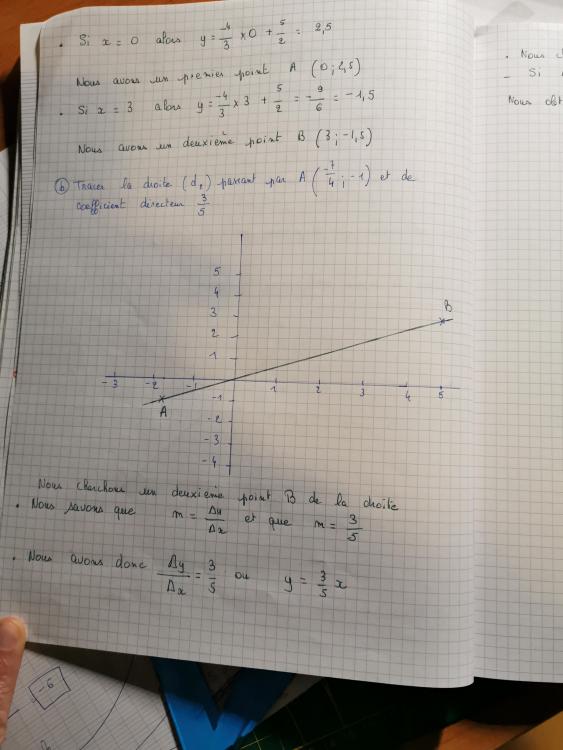 • Si x = 0 alors y = -4/3 × 0 + 5/2 = 2,5
Nous avons un premier point A (0 ; 2,5)
• Si x = 3 alors y = -4/3 × 3 + 5/2 = -9/6 = -1,5
Nous avons un deuxième point B (3 ; -1,5)
b) Tracer la droite (d₂) passant par A (-7/4 ; -1) et de
coefficient directeur 3/5
5
4
3
2
1
B
-3 -2 -1 1 2 3 4 5
A
-1
-2
-3
-4
Nous cherchons un deuxième point B de la droite
• Nous savons que m = Δy/Δx et que m = 3/5
• Nous avons donc Δy/Δx = 3/5 ou y = 3/5 x
-6
- Si